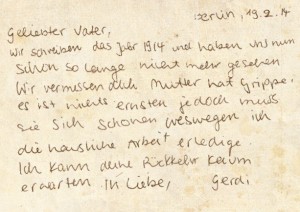 Berlin, 19.2.14
Geliebter Vater,
wir schreiben das Jahr 1914 und haben uns nun
schon so lange nicht mehr gesehen
Wir vermissen dich Mutter hat Grippe.
es ist nichts ernstes jedoch muss
sie sich schonen weswegen ich
die häusliche Arbeit erledige.
Ich kann deine Rückkehr kaum
erwarten. In Liebe, Gerdi